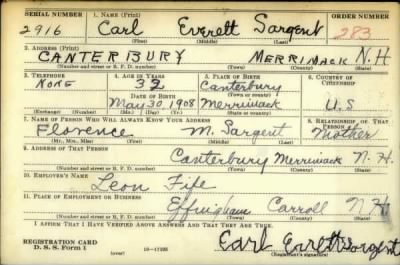 SERIAL NUMBER 1. NAME (Print) ORDER NUMBER
2916 Carl Everett Sargent 283
(First) (Middle) (Last)
2. ADDRESS (Print)
CANTERBURY MERRIMACK N.H.
(Number and street or R. F. D. number) (Town) (County) (State)
3. TELEPHONE 4. AGE IN YEARS 5. PLACE OF BIRTH 6. COUNTRY OF CITIZENSHIP
NONE 32 Canterbury
DATE OF BIRTH (Town or county)
May 30 1908 Merrimack U.S
(Exchange) (Number) (Mo.) (Day) (Yr.) (State or country)
7. NAME OF PERSON WHO WILL ALWAYS KNOW YOUR ADDRESS 8. RELATIONSHIP OF THAT PERSON
Florence M. Sargent Mother
(Mr., Mrs., Miss) (First) (Middle) (Last)
9. ADDRESS OF THAT PERSON
Canterbury Merrimack N. H.
(Number and street or R. F. D. number) (Town) (County) (State)
10. EMPLOYER'S NAME
Leon Fife
11. PLACE OF EMPLOYMENT OR BUSINESS
Effingham Carroll N H
(Number and street or R. F. D. number) (Town) (County) (State)
I AFFIRM THAT I HAVE VERIFIED ABOVE ANSWERS AND THAT THEY ARE TRUE.
REGISTRATION CARD
D. S. S. Form 1 (over) Earl Everett Sargent
(Registrant's signature)